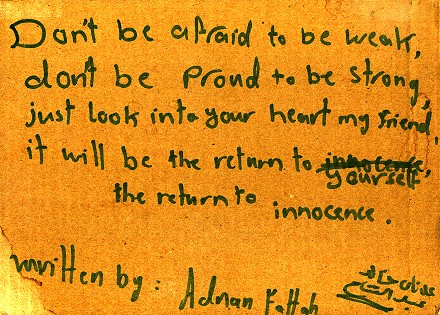 Don't be afraid to be weak,
don't be proud to be strong,
just look into your heart my friend,
it will be the return to innocence,
yourself
the return to
innocence.
written by: Adnan Fattah